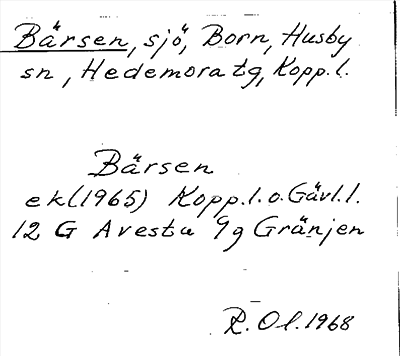 Bärsen, sjö, Born, Husby
sn, Hedemora tg, Kopp.l.
Bärsen
ek(1965) Kopp.l.o.Gävl.l.
12 G Avesta 9g Gränjen
R.Ol.1968